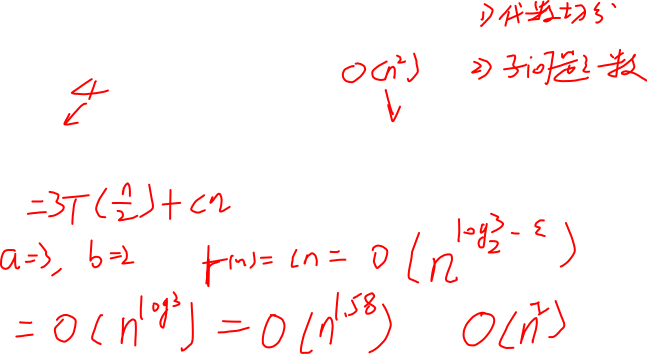 1) 代数切分
O(n²) 2) 子问题数
4
=3T(n/2)+cn
a=3, b=2 f(n)=cn=O(n^{log_2 3 - ε})
=O(n^{log3})=O(n^{1.58}) O(n²)